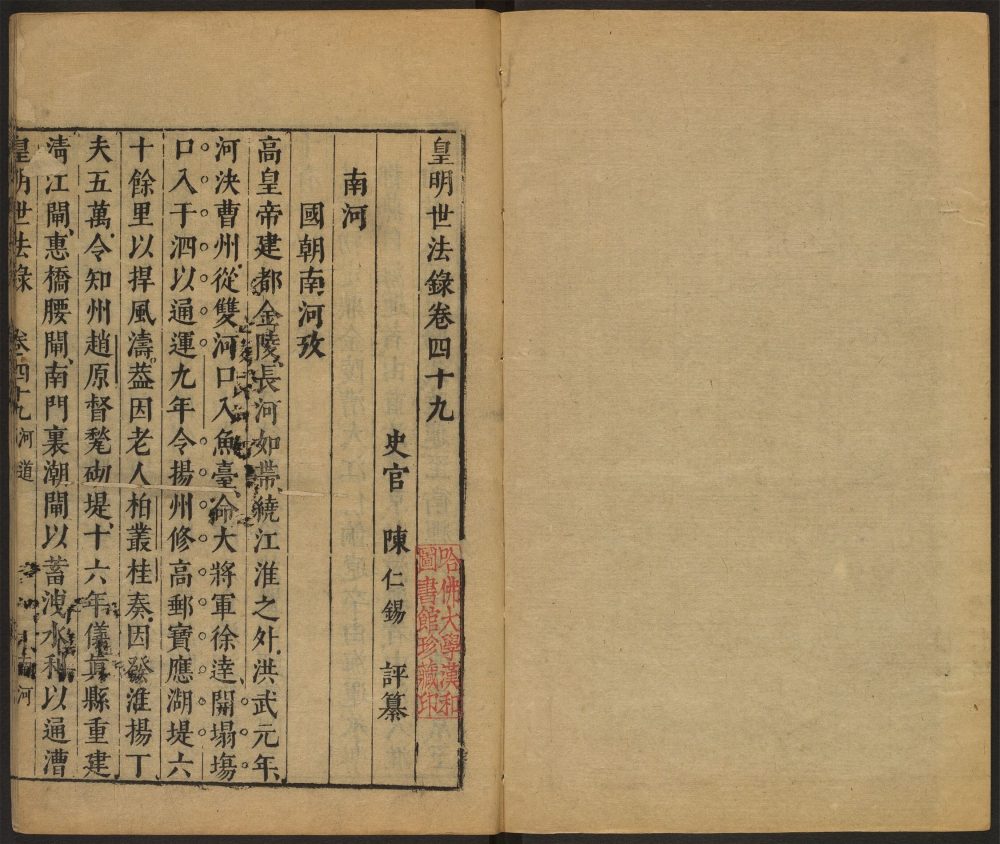 皇明世法錄卷四十九
史官 陳仁錫 評纂
哈佛大學漢和
圖書館珍藏印
南河
國朝南河攷
高皇帝建都金陵長河如帶繞江淮之外洪武元年
河決曹州從雙河口入魚臺命大將軍徐達開塌塲
口入于泗以通運九年令揚州修高郵寶應湖堤六
十餘里以捍風濤葢因老人柏叢桂奏因發淮揚丁
夫五萬令知州趙原督甃砌堤十六年儀真縣重建
淸江閘惠橋腰閘南門裏潮閘以蓄洩水利以通漕
皇明世法錄 卷四十九 河道 南河